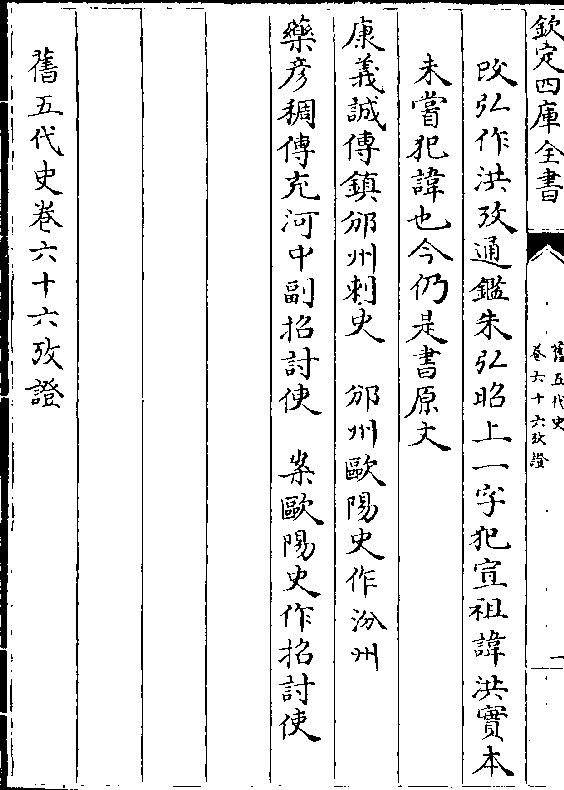 欽定四庫全書
舊五代史
卷六十六攷證
一
改弘作洪攷通鑑朱弘昭上一字犯宣祖諱洪實本
未嘗犯諱也今仍是書原文
康義誠傳鎮邠州刺史　邠州歐陽史作汾州
藥彥稠傳充河中副招討使　案歐陽史作招討使
舊五代史卷六十六攷證